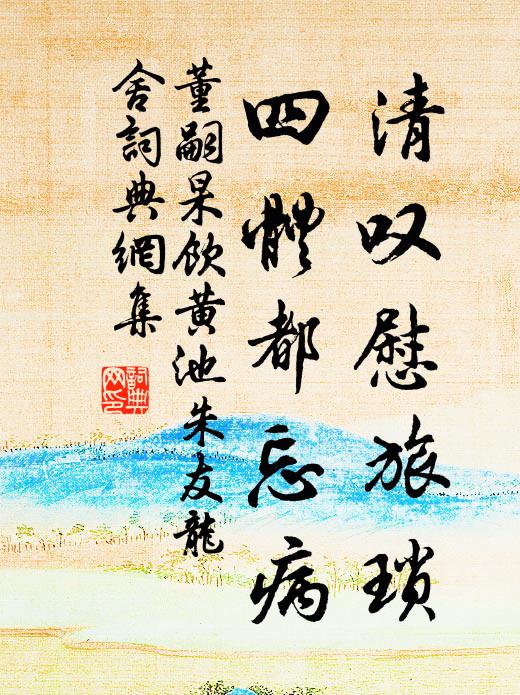 清叹慰旅琐
四體都忘病
董嗣杲飲黄池朱友龍
舍詞典網集
詞典
网印